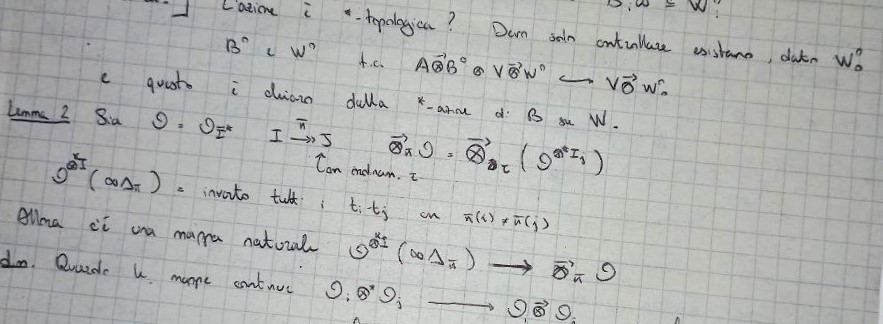 L'azione è *-topologica? Devo solo controllare esistano, dato W₀⁰
B⁰ e W⁰ t.c. A⊗⃗B⁰ ⊗ V⊗⃗W⁰ ↪ V⊗⃗W₀⁰
e questo è chiaro dalla *-azione di B su W.
Lemma 2 Sia O = O_Σ̄* I ↠^π J ⊗⃗_π O = ⊗⃗_τ (O^{⊗* I_j})
↑ con ordinam. τ
O^{⊗* I}(∞Δ_π) = inverto tutti i t_i - t_j con π(i) ≠ π(j)
Allora c'è una mappa naturale O^{⊗* I}(∞Δ_π) → ⊗⃗_π O
dim. mappe continue O_i ⊗* O_j → O_i ⊗⃗ O_j